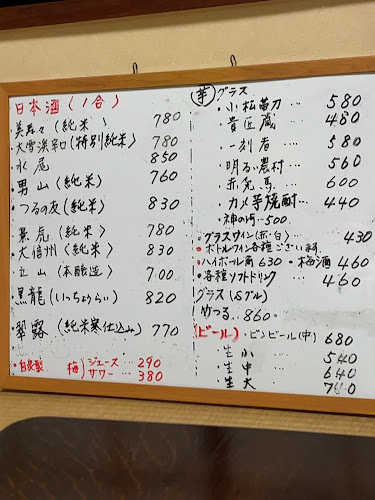 日本酒(1合)
・美寿々(純米) 780
・大雪渓辛口(特別純米) 780
・水尾 850
・男山(純米) 760
・つるの友(純米) 830
・景虎(純米) 780
・大信州(純米) 830
・立山(本醸造) 700
・黒龍(いっちょらい) 820
・翠露(純米寒仕込み) 770
・自家製 梅)ジュース… 290
サワー… 380
芋 グラス
・小松帯刀… 580
・貴匠蔵… 480
・一刻者 580
・明るい農村… 560
・赤兎馬… 600
・カメ芋焼酎… 440
・神の河…500
・グラスワイン(赤・白)… 430
・ボトルワイン各種ございます。
・ハイボール角630 ・梅酒 460
・各種ソフトドリンク… 460
グラス(Sグル)
860
(ビール)・ビンビール(中) 680
・生小 540
・生中 640
・生大